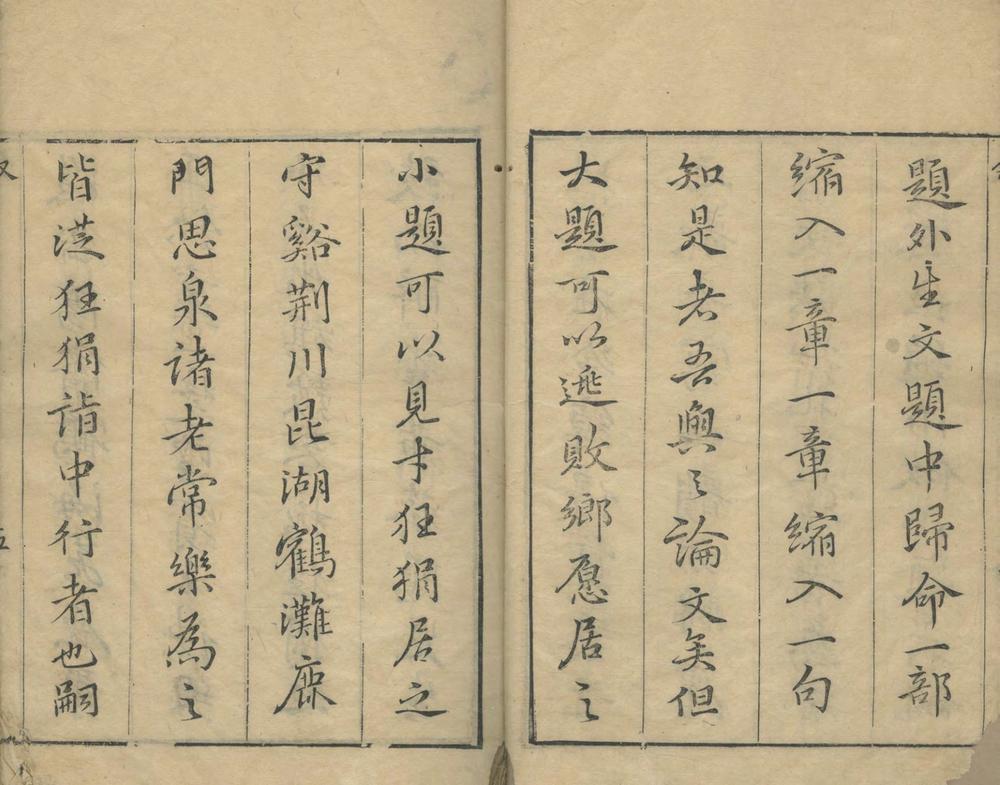 題外生文題中歸命一部
縮入一章一章縮入一句
知是老吾與之論文矣但
大題可以逃敗鄉愿居之
小題可以見才狂狷居之
守谿荆川昆湖鶴灘鹿
門思泉諸老常樂為之
皆從狂狷詣中行者也嗣